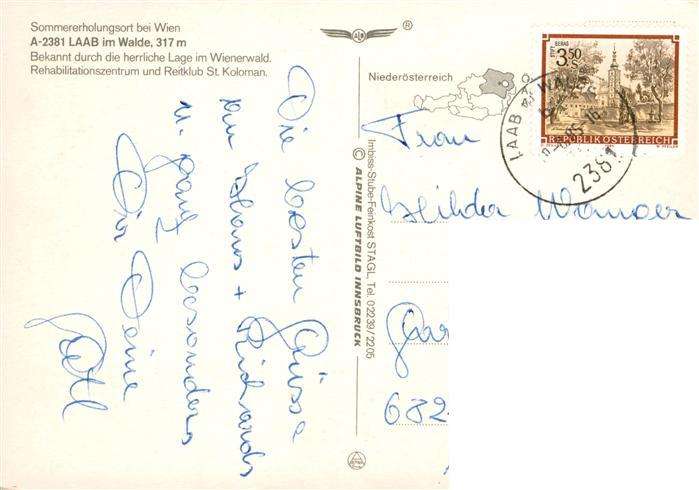 Sommererholungsort bei Wien
A-2381 LAAB im Walde, 317 m
Bekannt durch die herrliche Lage im Wienerwald.
Rehabilitationszentrum und Reitklub St. Koloman.
®
Niederösterreich
STIFT GERAS
3.50
REPUBLIK ÖSTERREICH
LAAB WALDE
2381
Imbiss-Stube-Feinkost STAGL, Tel. 02239/2205
© ALPINE LUFTBILD INNSBRUCK
Die besten Grüsse
an Hans + Richards
u. ganz besonders
Dir Deine
Frau
Hilda
682